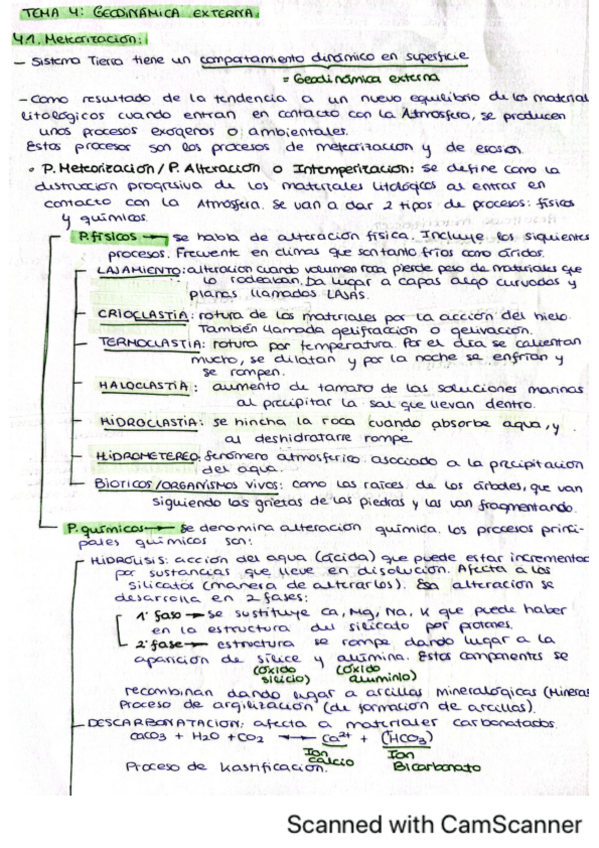 TEMA 4: GEODINÁMICA EXTERNA.
4.1. Meteorización:
- Sistema Tierra tiene un comportamiento dinámico en superficie
= Geodinámica externa
- Como resultado de la tendencia a un nuevo equilibrio de los material
litológicos cuando entran en contacto con la Atmósfera, se producen
unos procesos exógenos o ambientales.
Estos procesos son los procesos de meteorización y de erosión.
• P. Meteorización / P. Alteración o Intemperización: se define como la
destrucción progresiva de los materiales litológicos al entrar en
contacto con la Atmósfera. Se van a dar 2 tipos de procesos: físicos
y químicos.
P. físicos → se habla de alteración física. Incluye los siguientes
procesos. Frecuente en climas que son tanto fríos como áridos.
LAJAMIENTO: alteración cuando volumen roca pierde peso de materiales que
lo rodeaban. Da lugar a capas algo curvadas y
planas llamadas LAJAS.
CRIOCLASTIA: rotura de los materiales por la acción del hielo.
También llamada gelifracción o gelivación.
TERMOCLASTIA: rotura por temperatura. Por el día se calientan
mucho, se dilatan y por la noche se enfrían y
se rompen.
HALOCLASTIA: aumento de tamaño de las soluciones marinas
al precipitar la sal que llevan dentro.
HIDROCLASTIA: se hincha la roca cuando absorbe agua, y
al deshidratarse rompe.
HIDROMETEREO: fenómeno atmosférico asociado a la precipitación
del agua.
BIOTICOS/ORGANISMOS VIVOS: como las raíces de los árboles, que van
siguiendo las grietas de las piedras y las van fragmentando.
P. químicos → Se denomina alteración química. Los procesos princi-
pales químicos son:
- HIDRÓLISIS: acción del agua (ácida) que puede estar incrementad
por sustancias que lleve en disolución. Afecta a los
silicatos (manera de alterarlos). Esa alteración se
desarrolla en 2 fases:
1ª fase → se sustituye Ca, Mg, Na, K que puede haber
en la estructura del silicato por protones.
2ª fase → estructura se rompe dando lugar a la
aparición de sílice y alúmina. Estos componentes se
(óxido silicio) (óxido aluminio)
recombinan dando lugar a arcillas mineralógicas (Mineras
Proceso de argilización (de formación de arcillas).
- DESCARBONATACION: afecta a materiales carbonatados.
CaCO3 + H2O + CO2 → Ca2+ + (HCO3)
Ion calcio Ion Bicarbonato
Proceso de kastificación.
Scanned with CamScanner